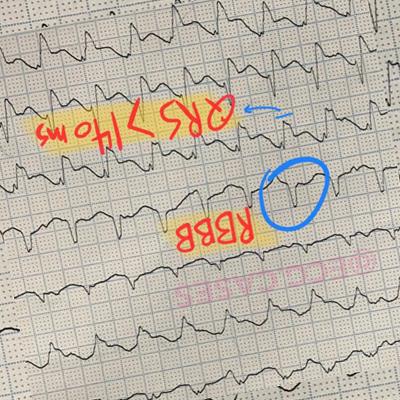 QRS > 140 ms
RBBB
#ECGCASES